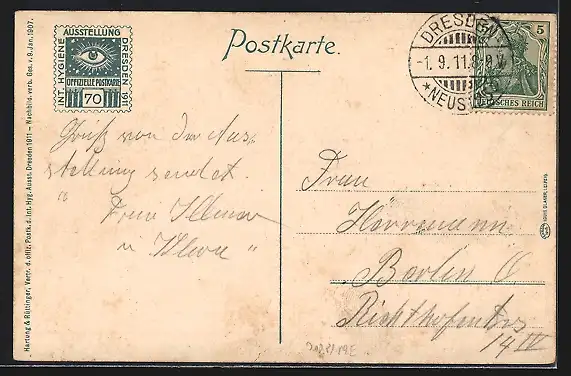 INT. HYGIENE
AUSSTELLUNG
DRESDEN 1911
OFFIZIELLE POSTKARTE
70
Postkarte.
DRESDEN
-1.9.11.8-9.V.
*NEUSTADT
5
DEUTSCHES REICH
Hartung & Rüttinger, Vertr. d. offiz. Postk. d. Int. Hyg. Ausst. Dresden 1911 — Nachbild. verb. Ges. v. 9. Jan. 1907.
Gruß von der Aus
stellung sendet
Frau
u
Frau
Herrmann
Berlin O
14 IV